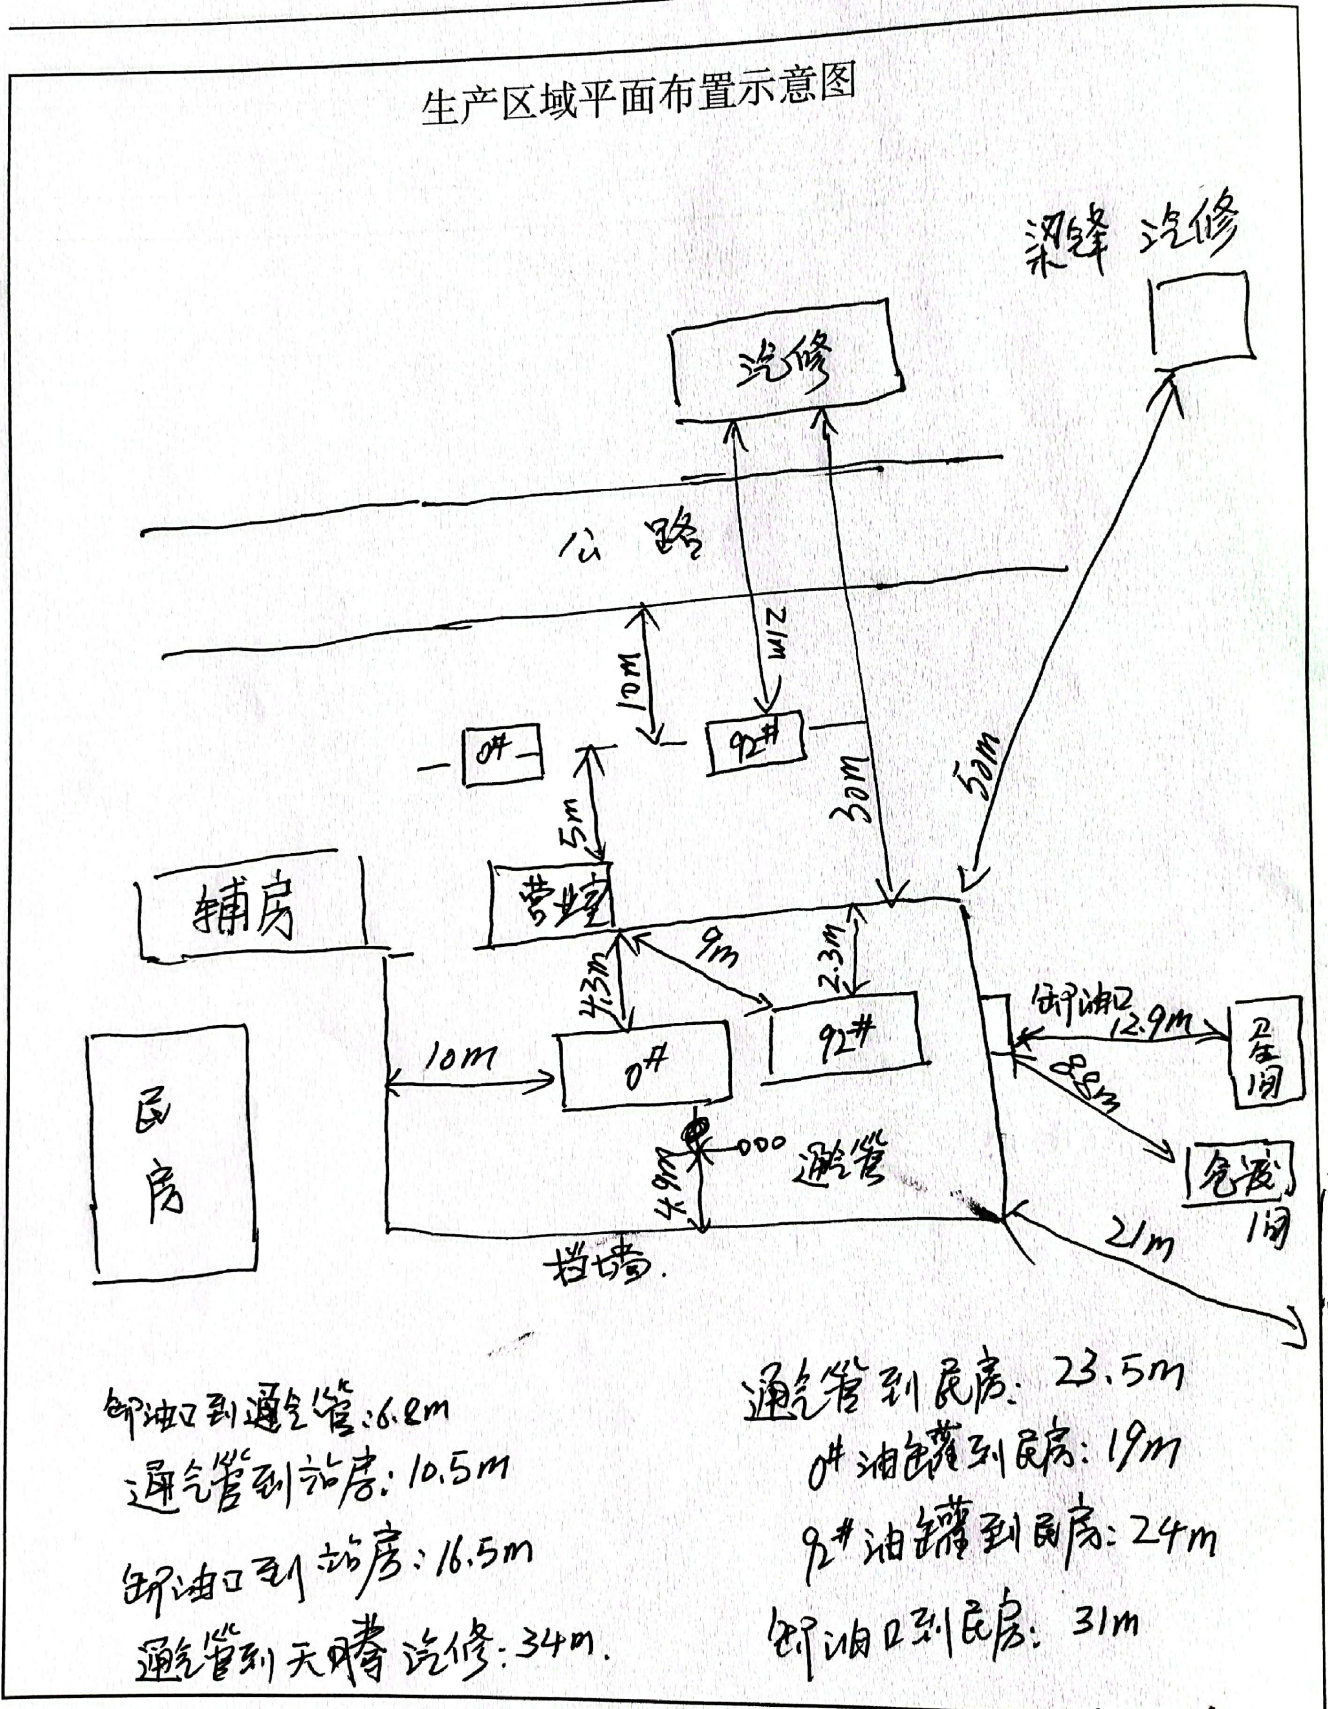 生产区域平面布置示意图
梁锋 汽修
汽修
公路
21m
10m
0#
92#
30m
50m
5m
辅房
营业室
9m
2.3m
4.3m
卸油口
12.9m
卫生间
92#
0#
10m
8.8m
民房
4.9m
通气管
21m
挡墙.
卸油口到通气管:6.8m
通气管到站房:10.5m
卸油口到站房:16.5m
通气管到天腾汽修:34m.
通气管到民房: 23.5m
0#油罐到民房:19m
92#油罐到民房:24m
卸油口到民房: 31m